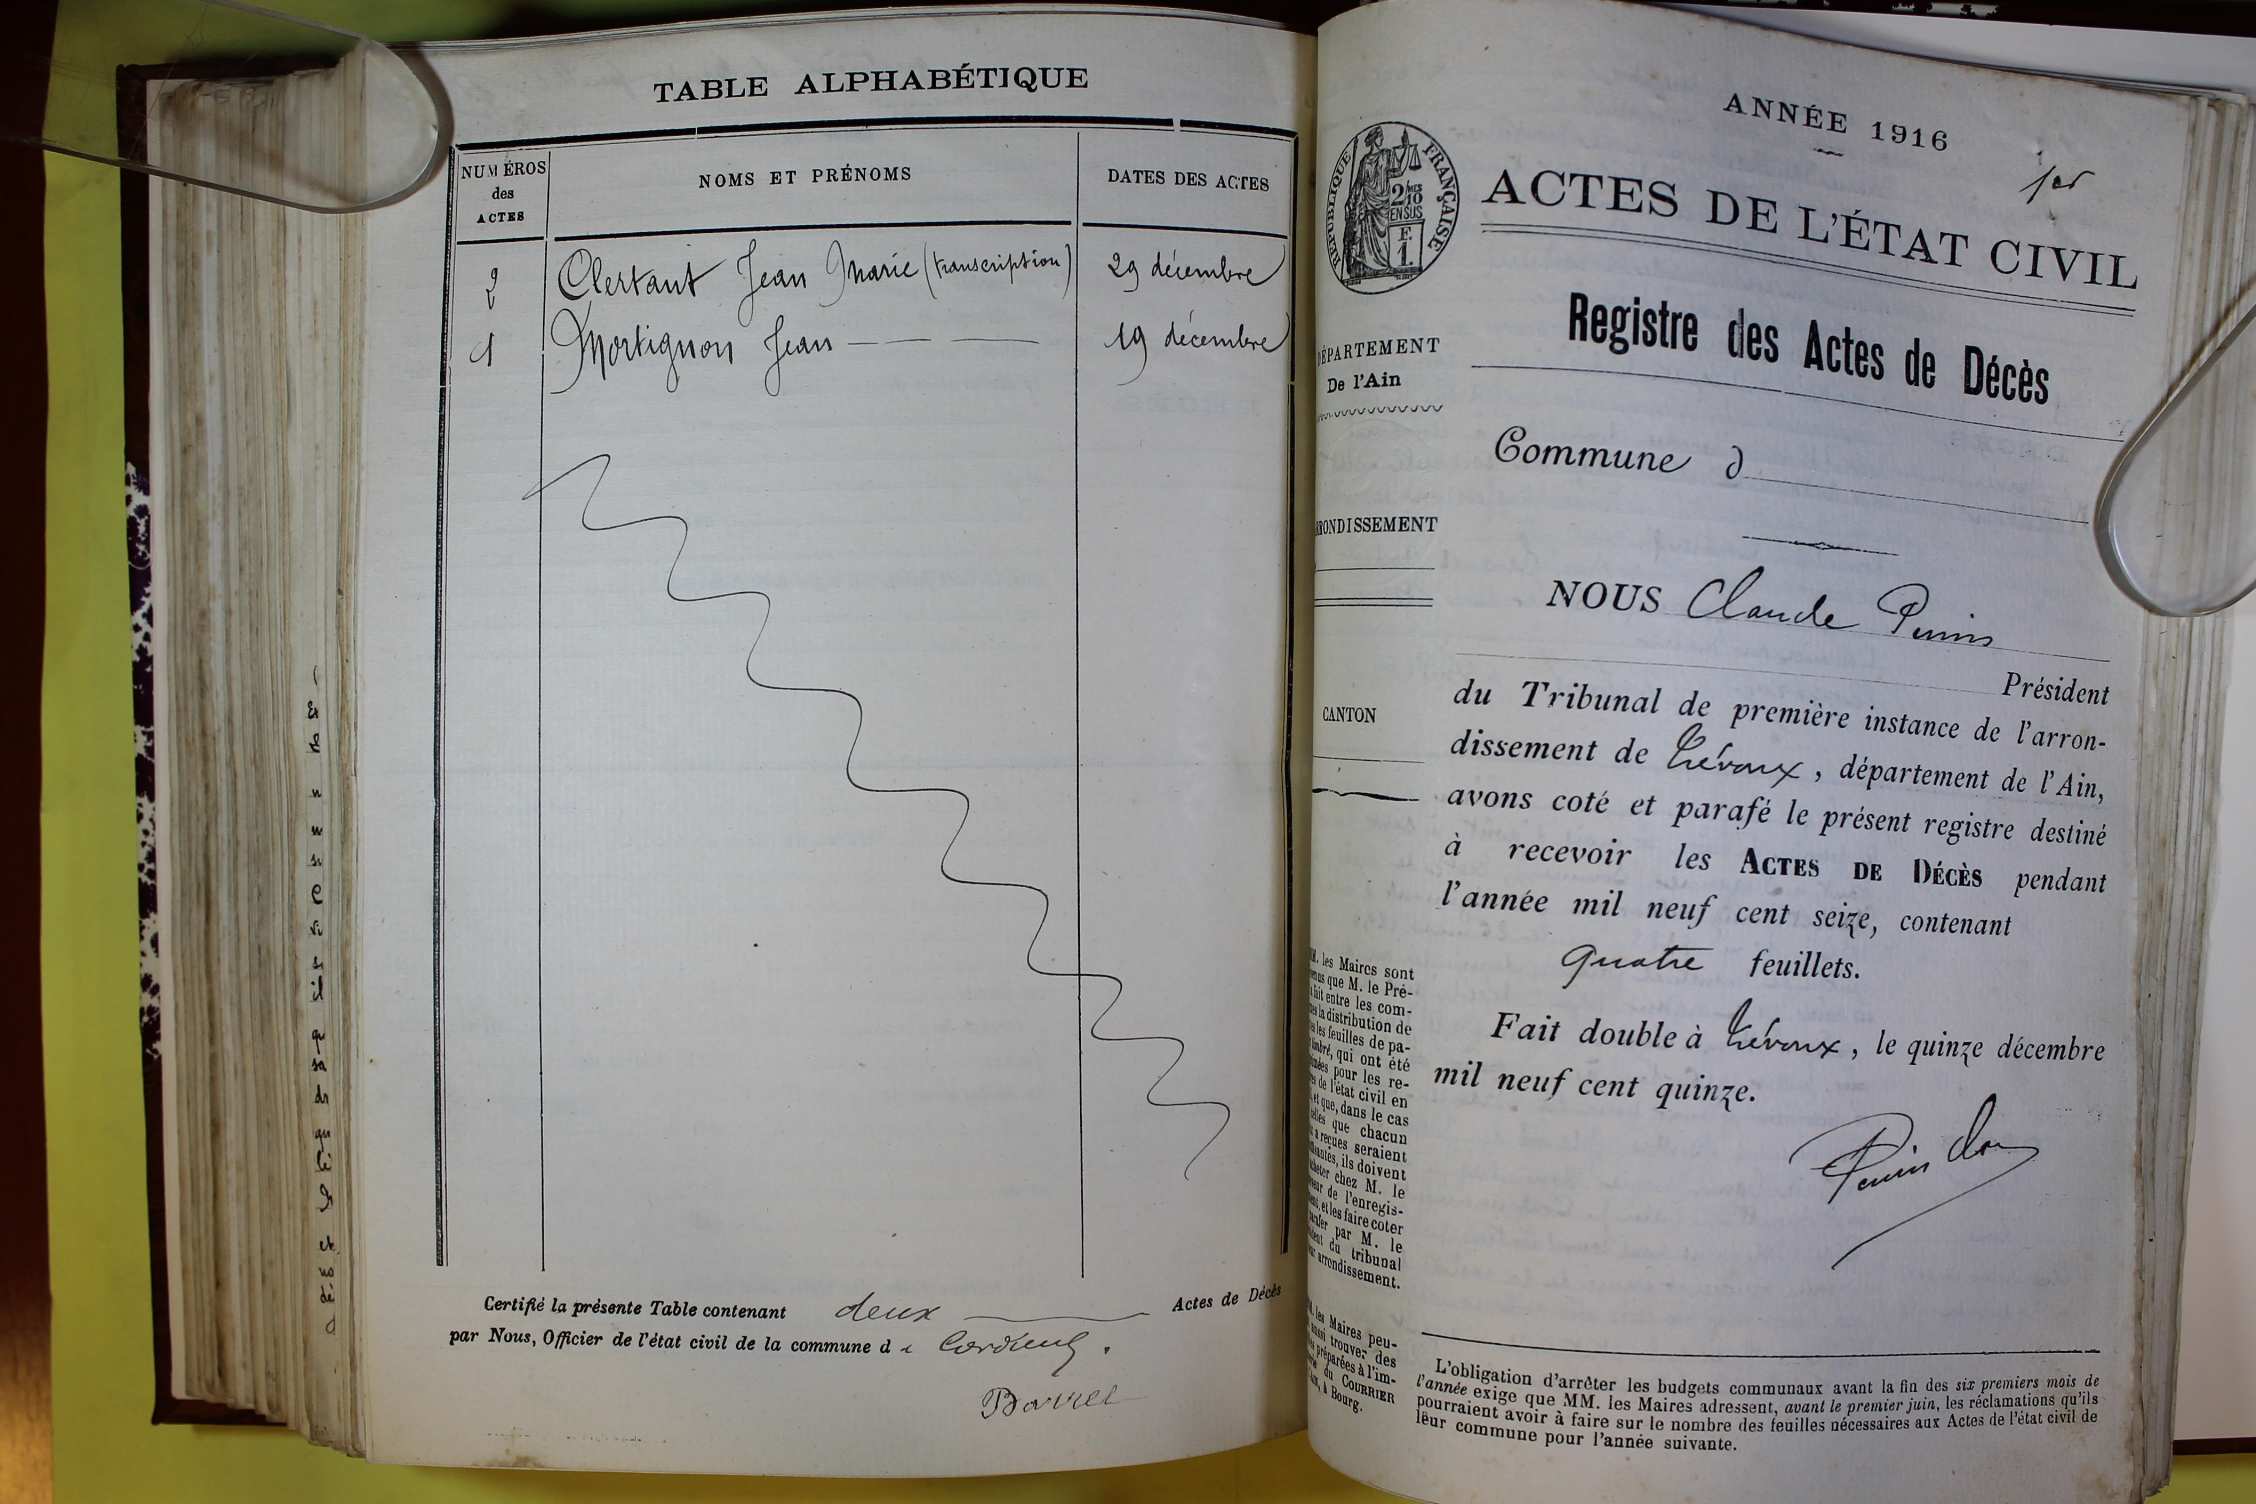 TABLE ALPHABÉTIQUE
NUMÉROS
des
ACTES
NOMS ET PRÉNOMS
DATES DES ACTES
2 Clertant Jean Marie (transcription) 29 décembre
1 Mortignon Jean 19 décembre
Certifié la présente Table contenant deux Actes de Décès
par Nous, Officier de l'état civil de la commune de Cordieux.
ANNÉE 1916
1er
ACTES DE L'ÉTAT CIVIL
RÉPUBLIQUE FRANÇAISE
2/10 MES
EN SUS
F.
1.
Registre des Actes de Décès
DÉPARTEMENT
De l'Ain
Commune d
ARRONDISSEMENT
NOUS Claude
Président
CANTON
du Tribunal de première instance de l'arron-
dissement de Trévoux, département de l'Ain,
avons coté et parafé le présent registre destiné
à recevoir les ACTES DE DÉCÈS pendant
l'année mil neuf cent seize, contenant
quatre feuillets.
Fait double à Trévoux, le quinze décembre
mil neuf cent quinze.
MM. les Maires sont
que M. le Pré-
fait entre les com-
la distribution de
les feuilles de pa-
timbré, qui ont été
pour les re-
de l'état civil en
et que, dans le cas
celles que chacun
a reçues seraient
ils doivent
acheter chez M. le
de l'enregis-
et les faire coter
parafer par M. le
du tribunal
arrondissement.
MM. les Maires peu-
aussi trouver des
préparées à l'im-
du COURRIER
à Bourg.
L'obligation d'arrêter les budgets communaux avant la fin des six premiers mois de
l'année exige que MM. les Maires adressent, avant le premier juin, les réclamations qu'ils
pourraient avoir à faire sur le nombre des feuilles nécessaires aux Actes de l'état civil de
leur commune pour l'année suivante.